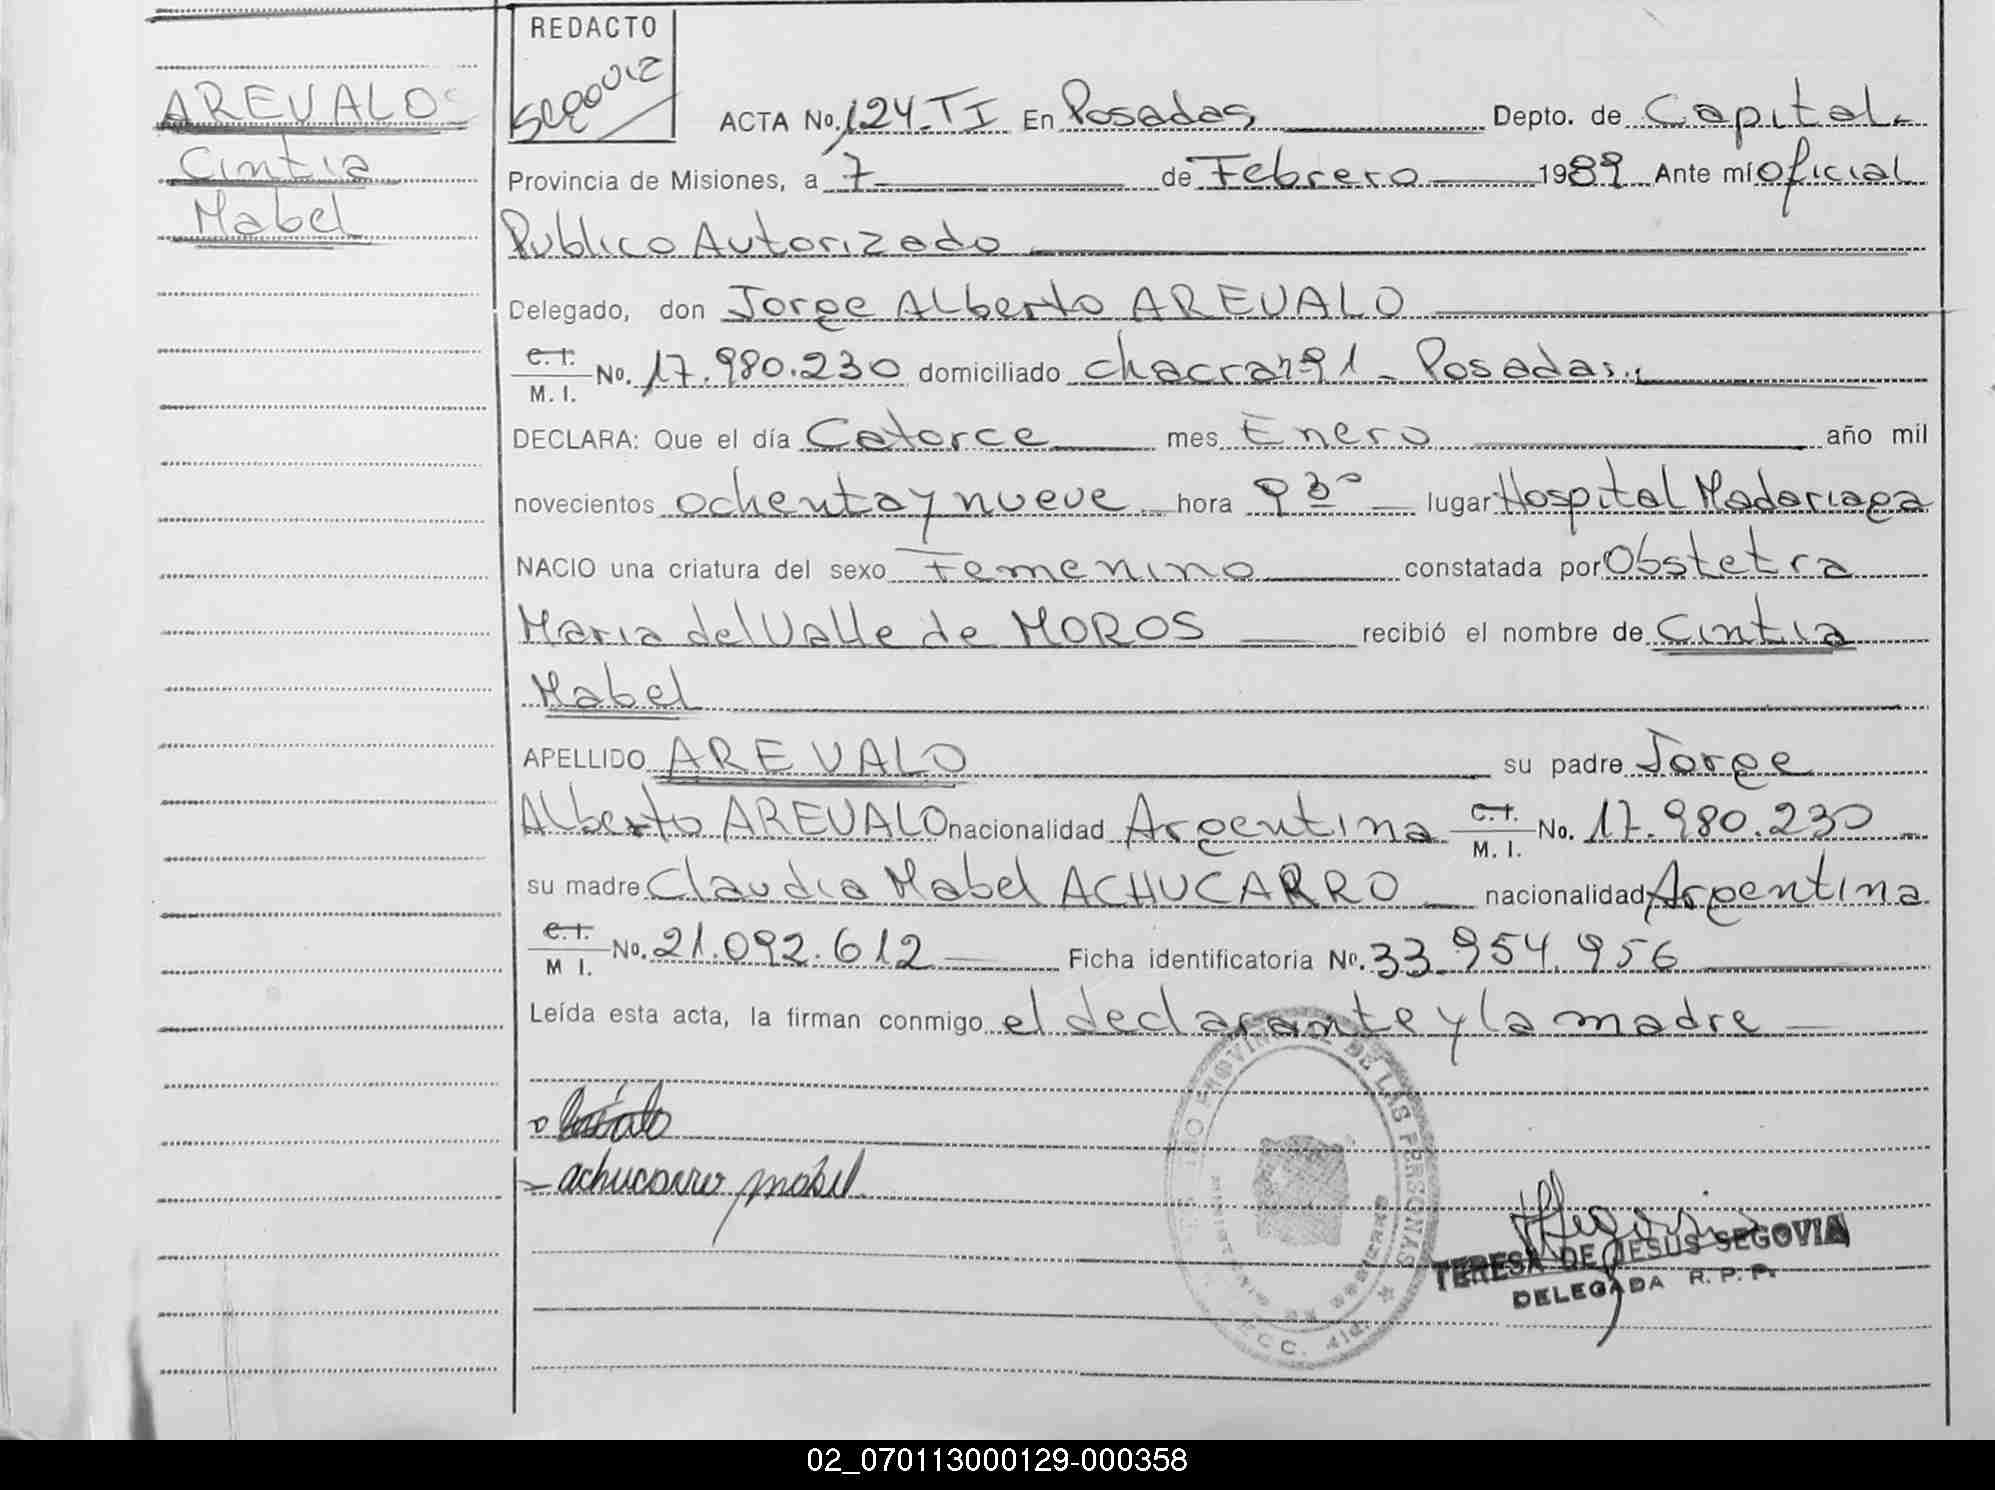 REDACTO
AREVALO
Cintia
Mabel
ACTA No. 124-TI En Posadas Depto. de Capital
Provincia de Misiones, a 7 de Febrero 1989 Ante mí oficial
Publico Autorizado
Delegado, don Jorge Alberto AREVALO
C. I. M. I. No. 17.980.230 domiciliado chacra nº 91 - Posadas
DECLARA: Que el día Catorce mes Enero año mil
novecientos ochenta y nueve hora 9 30 lugar Hospital Madariaga
NACIO una criatura del sexo Femenino constatada por Obstetra
Maria del Valle de MOROS recibió el nombre de Cintia
Mabel
APELLIDO AREVALO su padre Jorge
Alberto AREVALO nacionalidad Argentina C. I. M. I. No. 17.980.230
su madre Claudia Mabel ACHUCARRO nacionalidad Argentina
C. I. M I. No. 21.092.612 Ficha identificatoria No. 33.954.956
Leída esta acta, la firman conmigo el declarante y la madre
achucarro mabel
PROVINCIAL DE LAS PERSONAS
TERESA DE JESUS SEGOVIA
DELEGADA R. P. P.
02_070113000129-000358